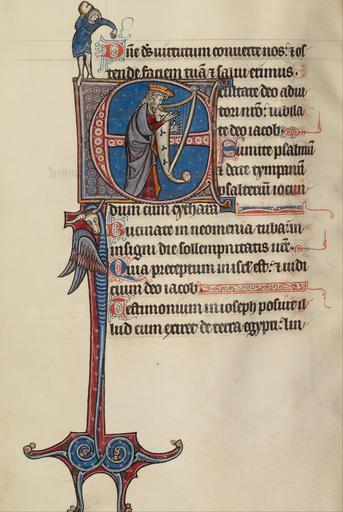 Dñe ds uirtutum conuerte nos: ⁊ os
tende faciem tuã ⁊ salui erimus.
Exultate deo adiu
tori nr̃o: iubila
te deo iacob.
Sumite psalmũ
⁊ date tympanũ
psalterium iocun
dum cum cythara
Bucinate in neomenia tuba: in
insigni die sollempnitatis ur̃e.
Quia preceptum in isrl̃ est: ⁊ iudi
cium deo iacob.
Testimonium in ioseph posuit il
lud cum exiret de terra egypti: lin